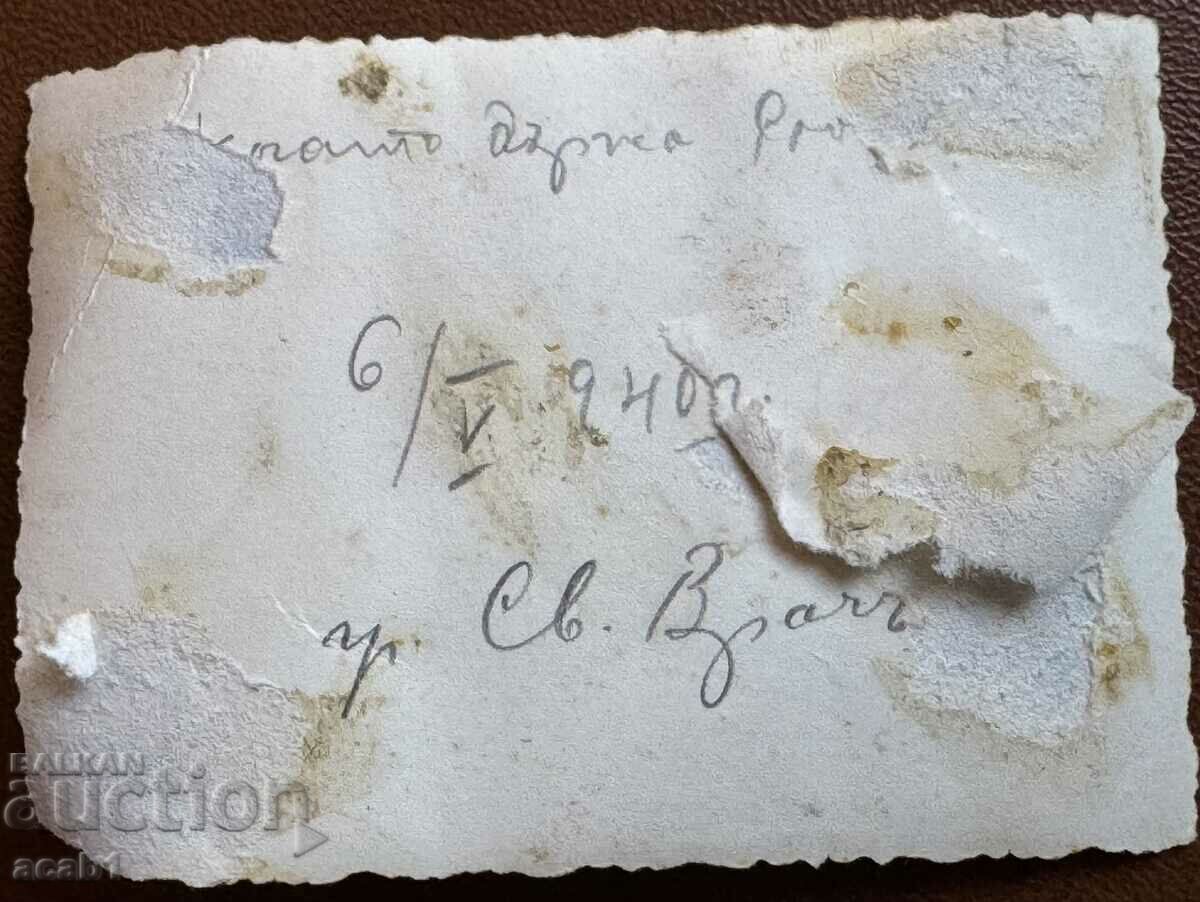 когато държа
6/V 940 г.
гр. Св. Врачъ
BALKAN
auction
acab1